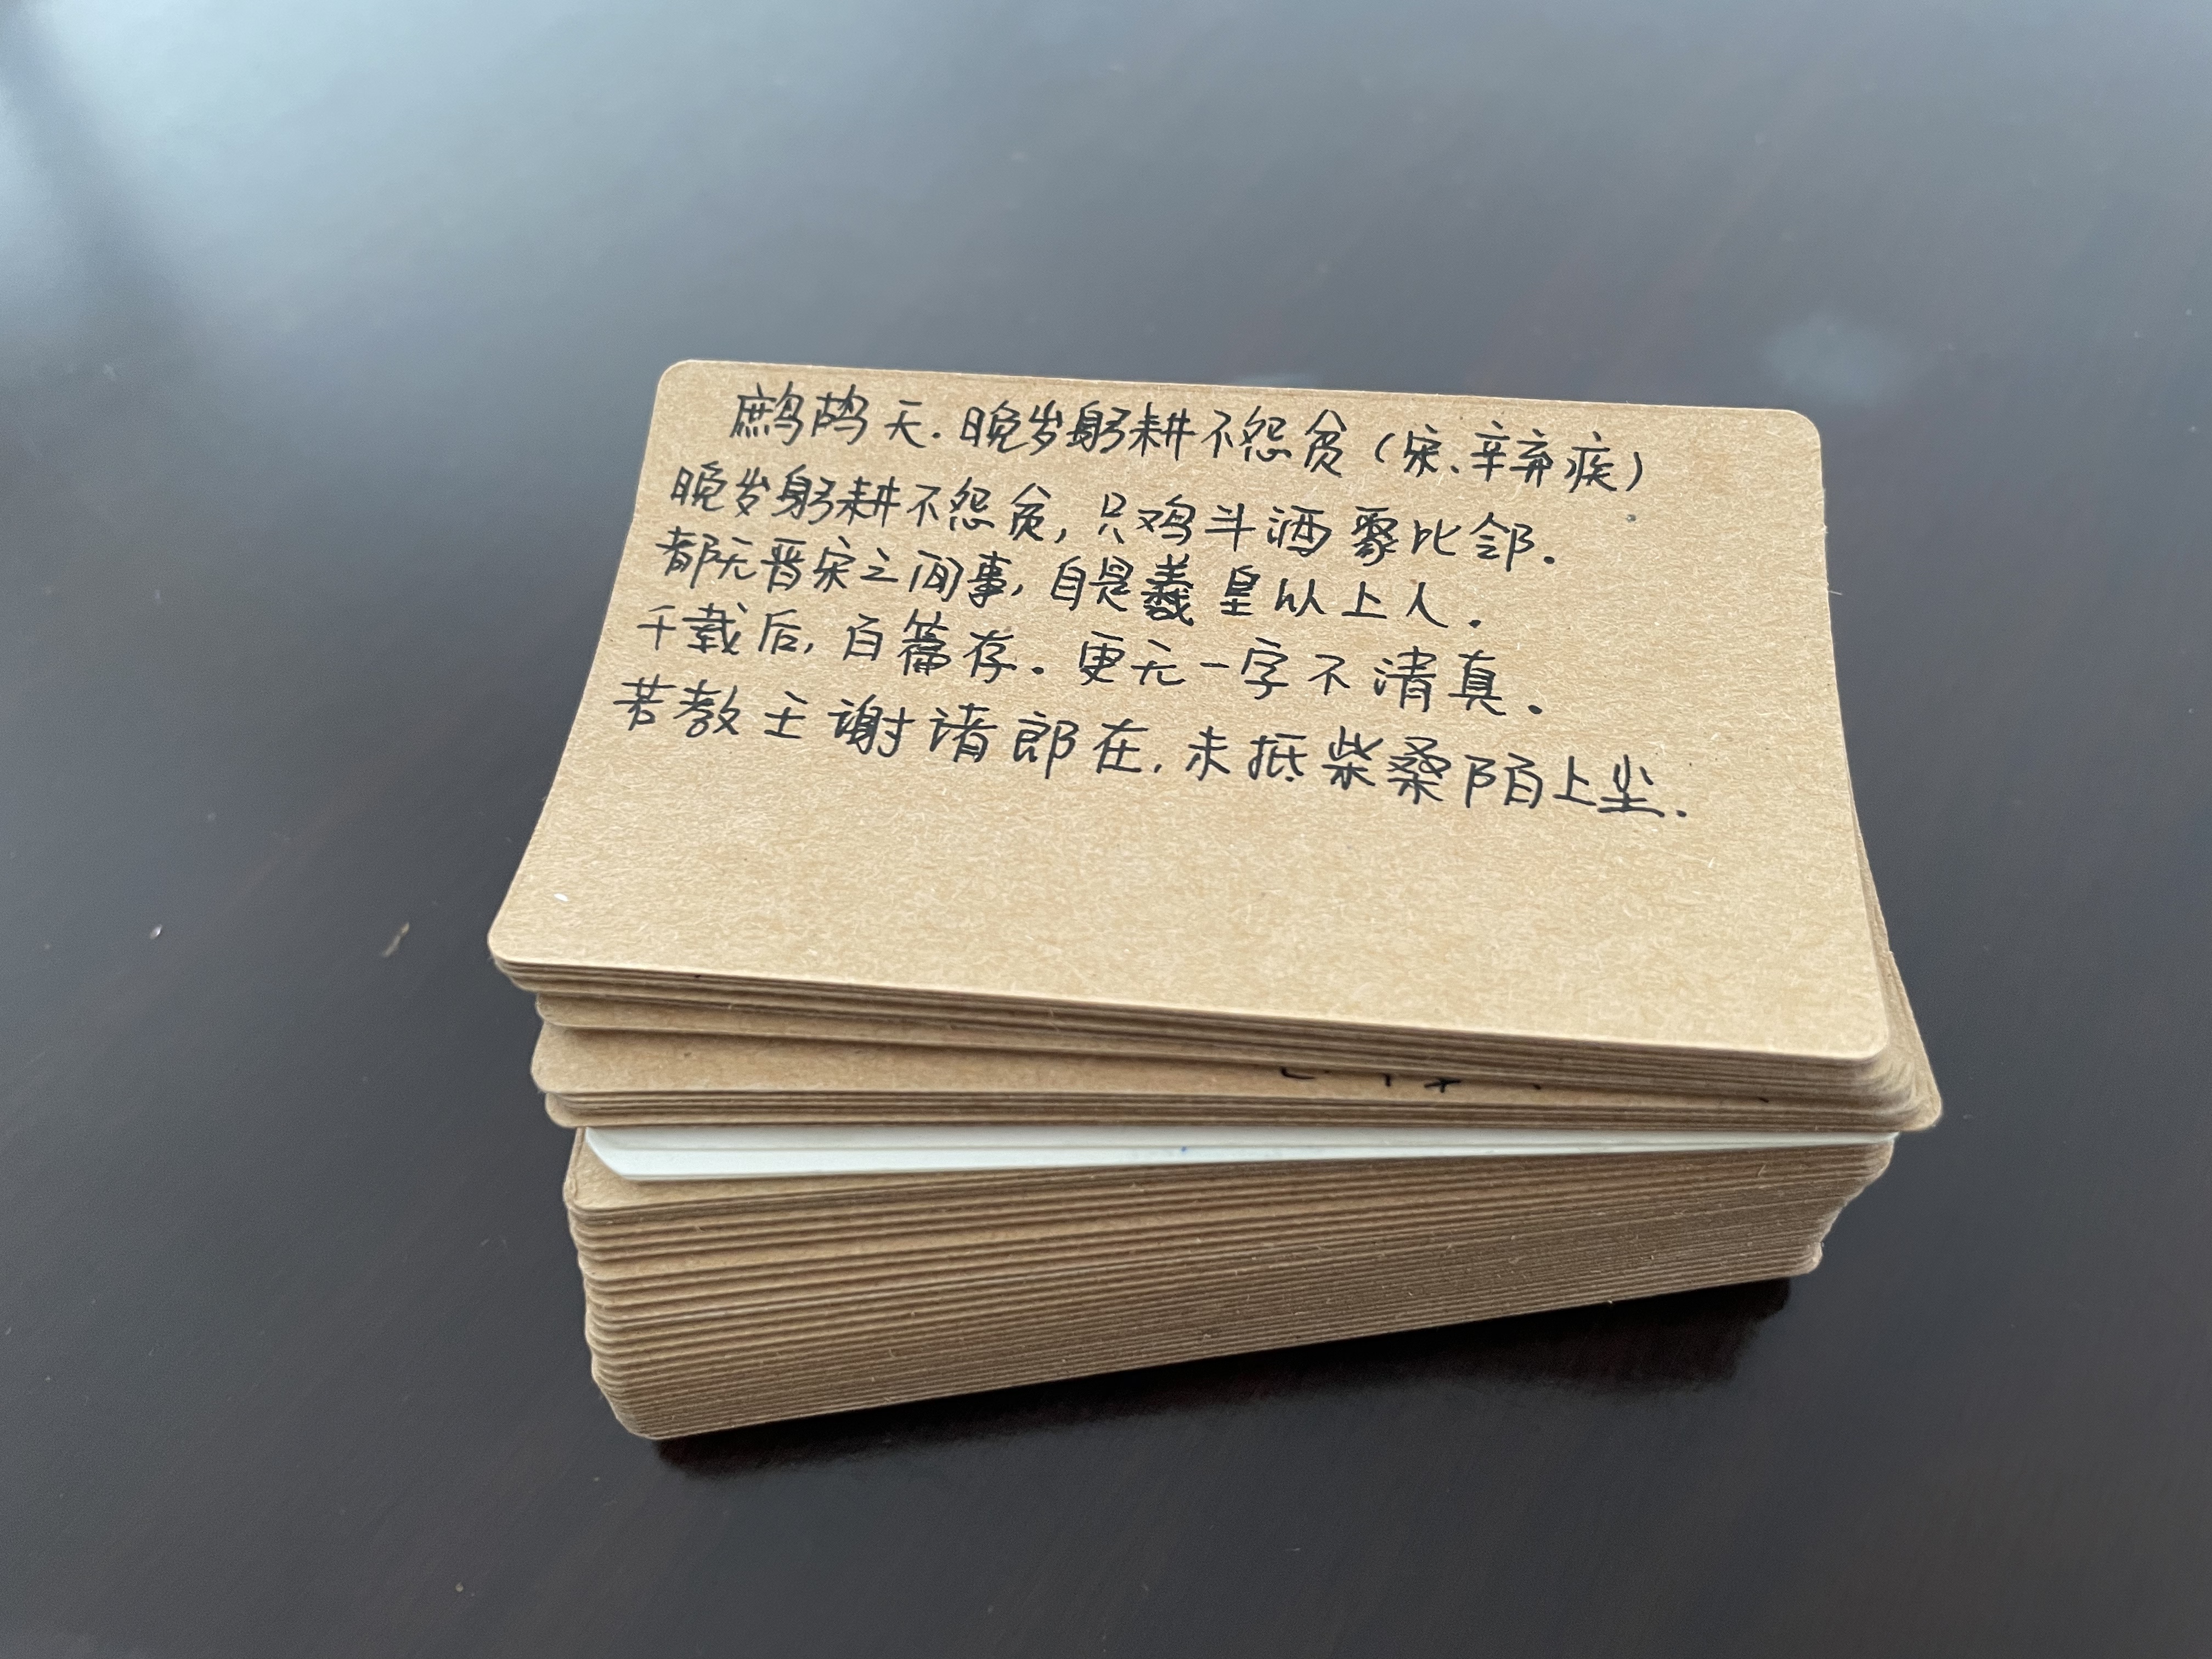 鹧鸪天.晚岁躬耕不怨贫(宋、辛弃疾)
晚岁躬耕不怨贫,只鸡斗酒聚比邻.
都无晋宋之间事,自是羲皇以上人.
千载后,百篇存.更无一字不清真.
若教王谢诸郎在,未抵柴桑陌上尘.